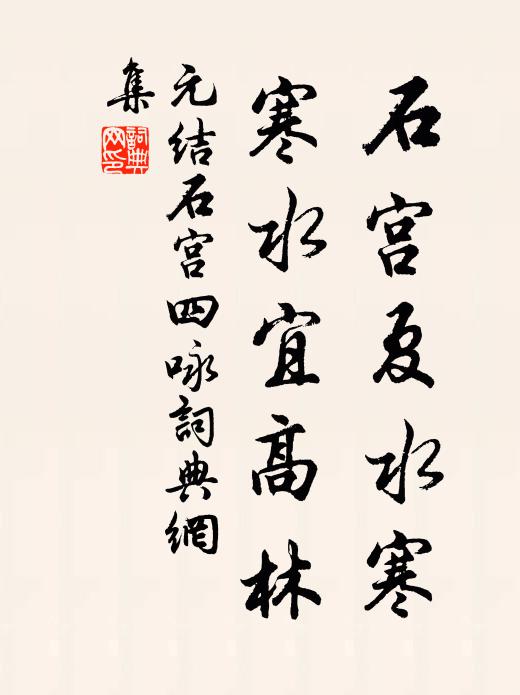 石宫夏水寒
寒水宜高林
元结石宫四咏詞典網
集
詞典網印